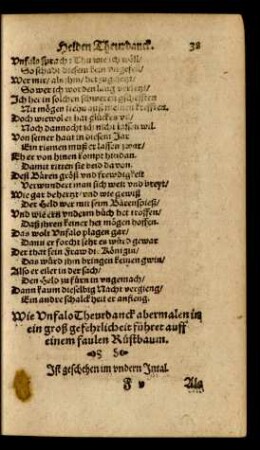 Helden Theurdanck. 38
Vnfalo sprach: Thu wie ich wöll/
So schadt diesem kein vngfell/
Wer mit/ als ihm/ het zugehört/
So wer ich worden lang
Ich het in solchen schweren gscheften
Nit mögen
Doch wiewol er hat glückes vil/
Noch dannocht ich nicht lassen wil.
Von seiner haut in diesem Jar
Ein riemen muß er lassen zwar/
Eh er von hinen kompt hindan.
Damit ritten sie beid da von.
Deß Bären größ vnd frewdigkeit
Verwundert man sich weit vnd breyt/
Wie gar behertzt/ vnd wie gewiß
Der Held wer mit seim Bärenspieß/
Vnd wie ern vnderm büch het troffen/
Daß ihren keiner het mögen hoffen.
Das wolt Vnfalo plagen gar/
Dann er forcht sehr es würd gewar
Der that sein Fraw die Königin/
Das würd ihm bringen keinen gwin/
Also er eilet in der sach/
Den Held zu fürn in vngemach/
Dann kaum dieselbig Nacht vergieng/
Ein andre schalckheit er anfieng.
Wie Vnfalo Theurdanck abermalen in
ein groß gefehrlicheit führet auff
einem faulen Rüstbaum.
Ist geschehen im vndern Intal.
F v Als